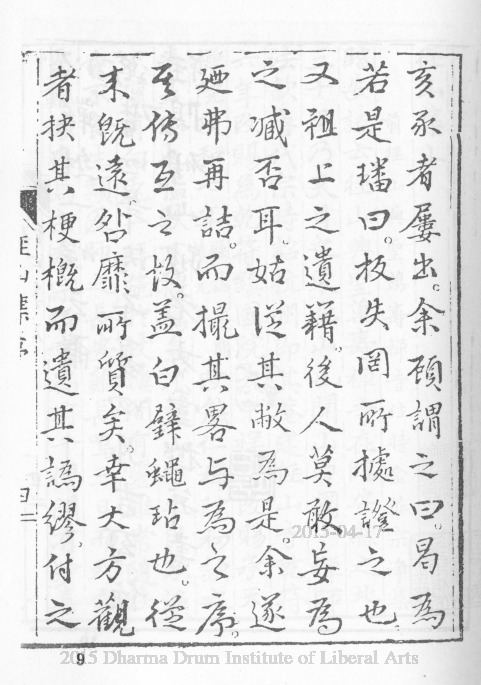 亥豕者屢出。余顧謂之曰。曷為
若是璠曰。板失罔所據證之也
又祖上之遺籍。後人莫敢妄為
之臧否耳。姑從其敝為是。余遂
廼弗再詰。而撮其畧与為之序。
傳之故。盖白璧蠅玷也。從
末既遠。靡所質矣。幸大方觀
者抉其梗概而遺其譌繆。付之
2015-04-17
9
2015 Dharma Drum Institute of Liberal Arts